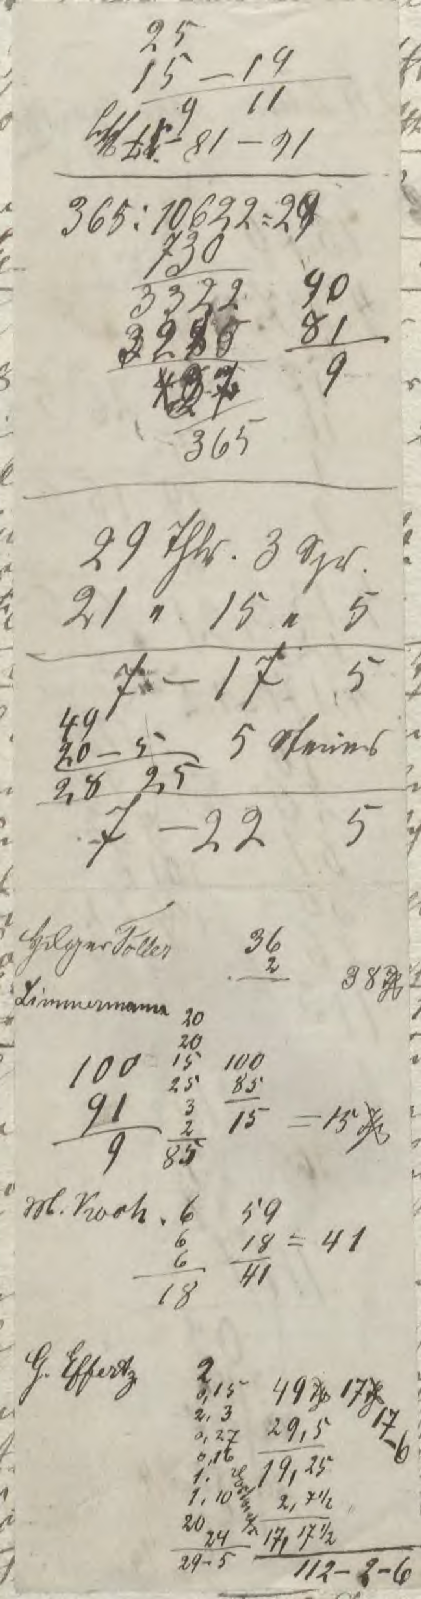 25
15 - 19
9 11
81 - 91
365 : 10622 = 29
730
3322 90
3285 81
9
365
29 Thlr. 3 Sgr.
21 " 15 " 5
7 - 17 5
49
20 - 5 5
28 25
7 - 22 5
Hilger 36
2 38
Zimmermann 20
20
100 15 100
91 25 85
9 3 15 = 15
2
85
M. Koch. 6 59
6 18 = 41
6 41
18
G. Effertz 2
0,15 49 17
2, 3 17-6
0,27 29,5
0,16 19,25
1.
1.10 2, 7½
20 17, 17½
24
29-5 112-2-6